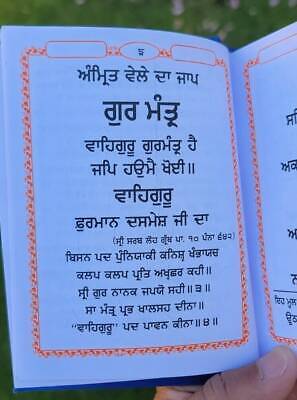 ੜ
ਅੰਮ੍ਰਿਤ ਵੇਲੇ ਦਾ ਜਾਪ
ਗੁਰ ਮੰਤ੍ਰ
ਵਾਹਿਗੁਰੂ ਗੁਰਮੰਤ੍ਰ ਹੈ
ਜਪਿ ਹਉਮੈ ਖੋਈ॥
ਵਾਹਿਗੁਰੂ
ਫ਼ੁਰਮਾਨ ਦਸਮੇਸ਼ ਜੀ ਦਾ
(ਸ੍ਰੀ ਸਰਬ ਲੋਹ ਗ੍ਰੰਥ ਪਾ. ੧੦ ਪੰਨਾ ੬੪੨)
ਬਿਸਨ ਪਦ ਪੁੰਨਿਯਾਕੀ ਕਨਿਸ਼੍ਟ ਖੰਭਾਯਚ
ਕਲਪ ਕਲਪ ਪ੍ਰਤਿ ਅਖੁਛਰ ਕਹੀ॥
ਸ੍ਰੀ ਗੁਰ ਨਾਨਕ ਜਪਯੋ ਸਹੀ॥੩॥
ਸਾ ਮੰਤ੍ਰ ਪ੍ਰਭ ਖਾਲਸਹ ਦੀਨਾ॥
"ਵਾਹਿਗੁਰੂ" ਪਦ ਪਾਵਨ ਕੀਨਾ॥੪॥